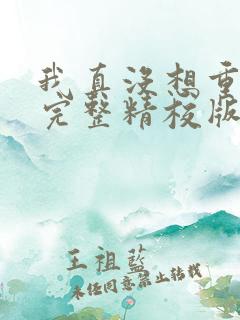 我真没想重
完整精校版
王祖蓝
未经同意禁止转载